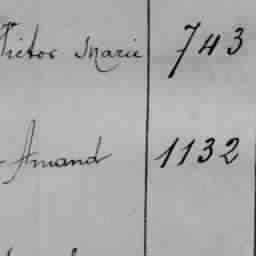 Victor Marie 743
Amand 1132